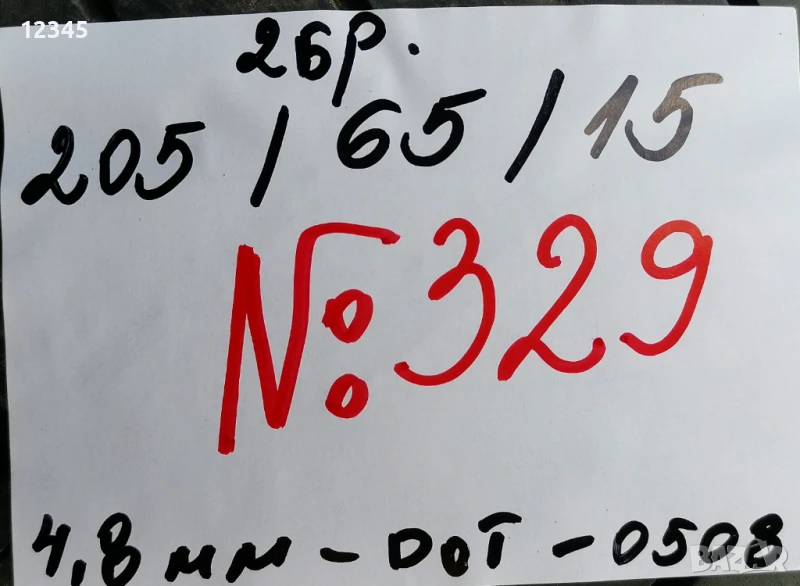 12345
2бр.
205/65/15
№:329
4,8мм-DOT-0508
BAZAR